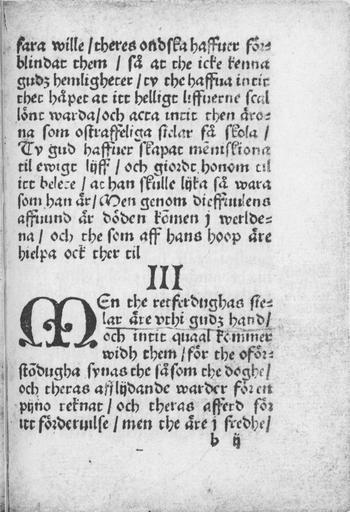 fara wille / theres ondska haffuer för⸗
blindat them / så at the icke kenna
gudz hemligheter / ty the haffua intit
thet håpet at itt helligt liffuerne scal
lönt warda / och acta intit then äro⸗
na som ostraffeliga sielar få skola /
Ty gud haffuer skapat mēniskiona
til ewigt lijff / och giordt honom til
itt belete / at han skulle lijka så wara
som han är / Men genom dieffuulens
affuund är döden kōmen j werlde⸗
na / och the som aff hans hoop äre
hielpa ock ther til
III
MEn the retferdughas sie⸗
lar äre vthi gudz hand /
och intit quaal kōmmer
widh them / för the oför⸗
stōdugha synas the så som the döghe /
och theras afflijdande warder för en
pijno reknat / och theras afferd för
itt förderuilse / men the äre j fredhe /
b ij